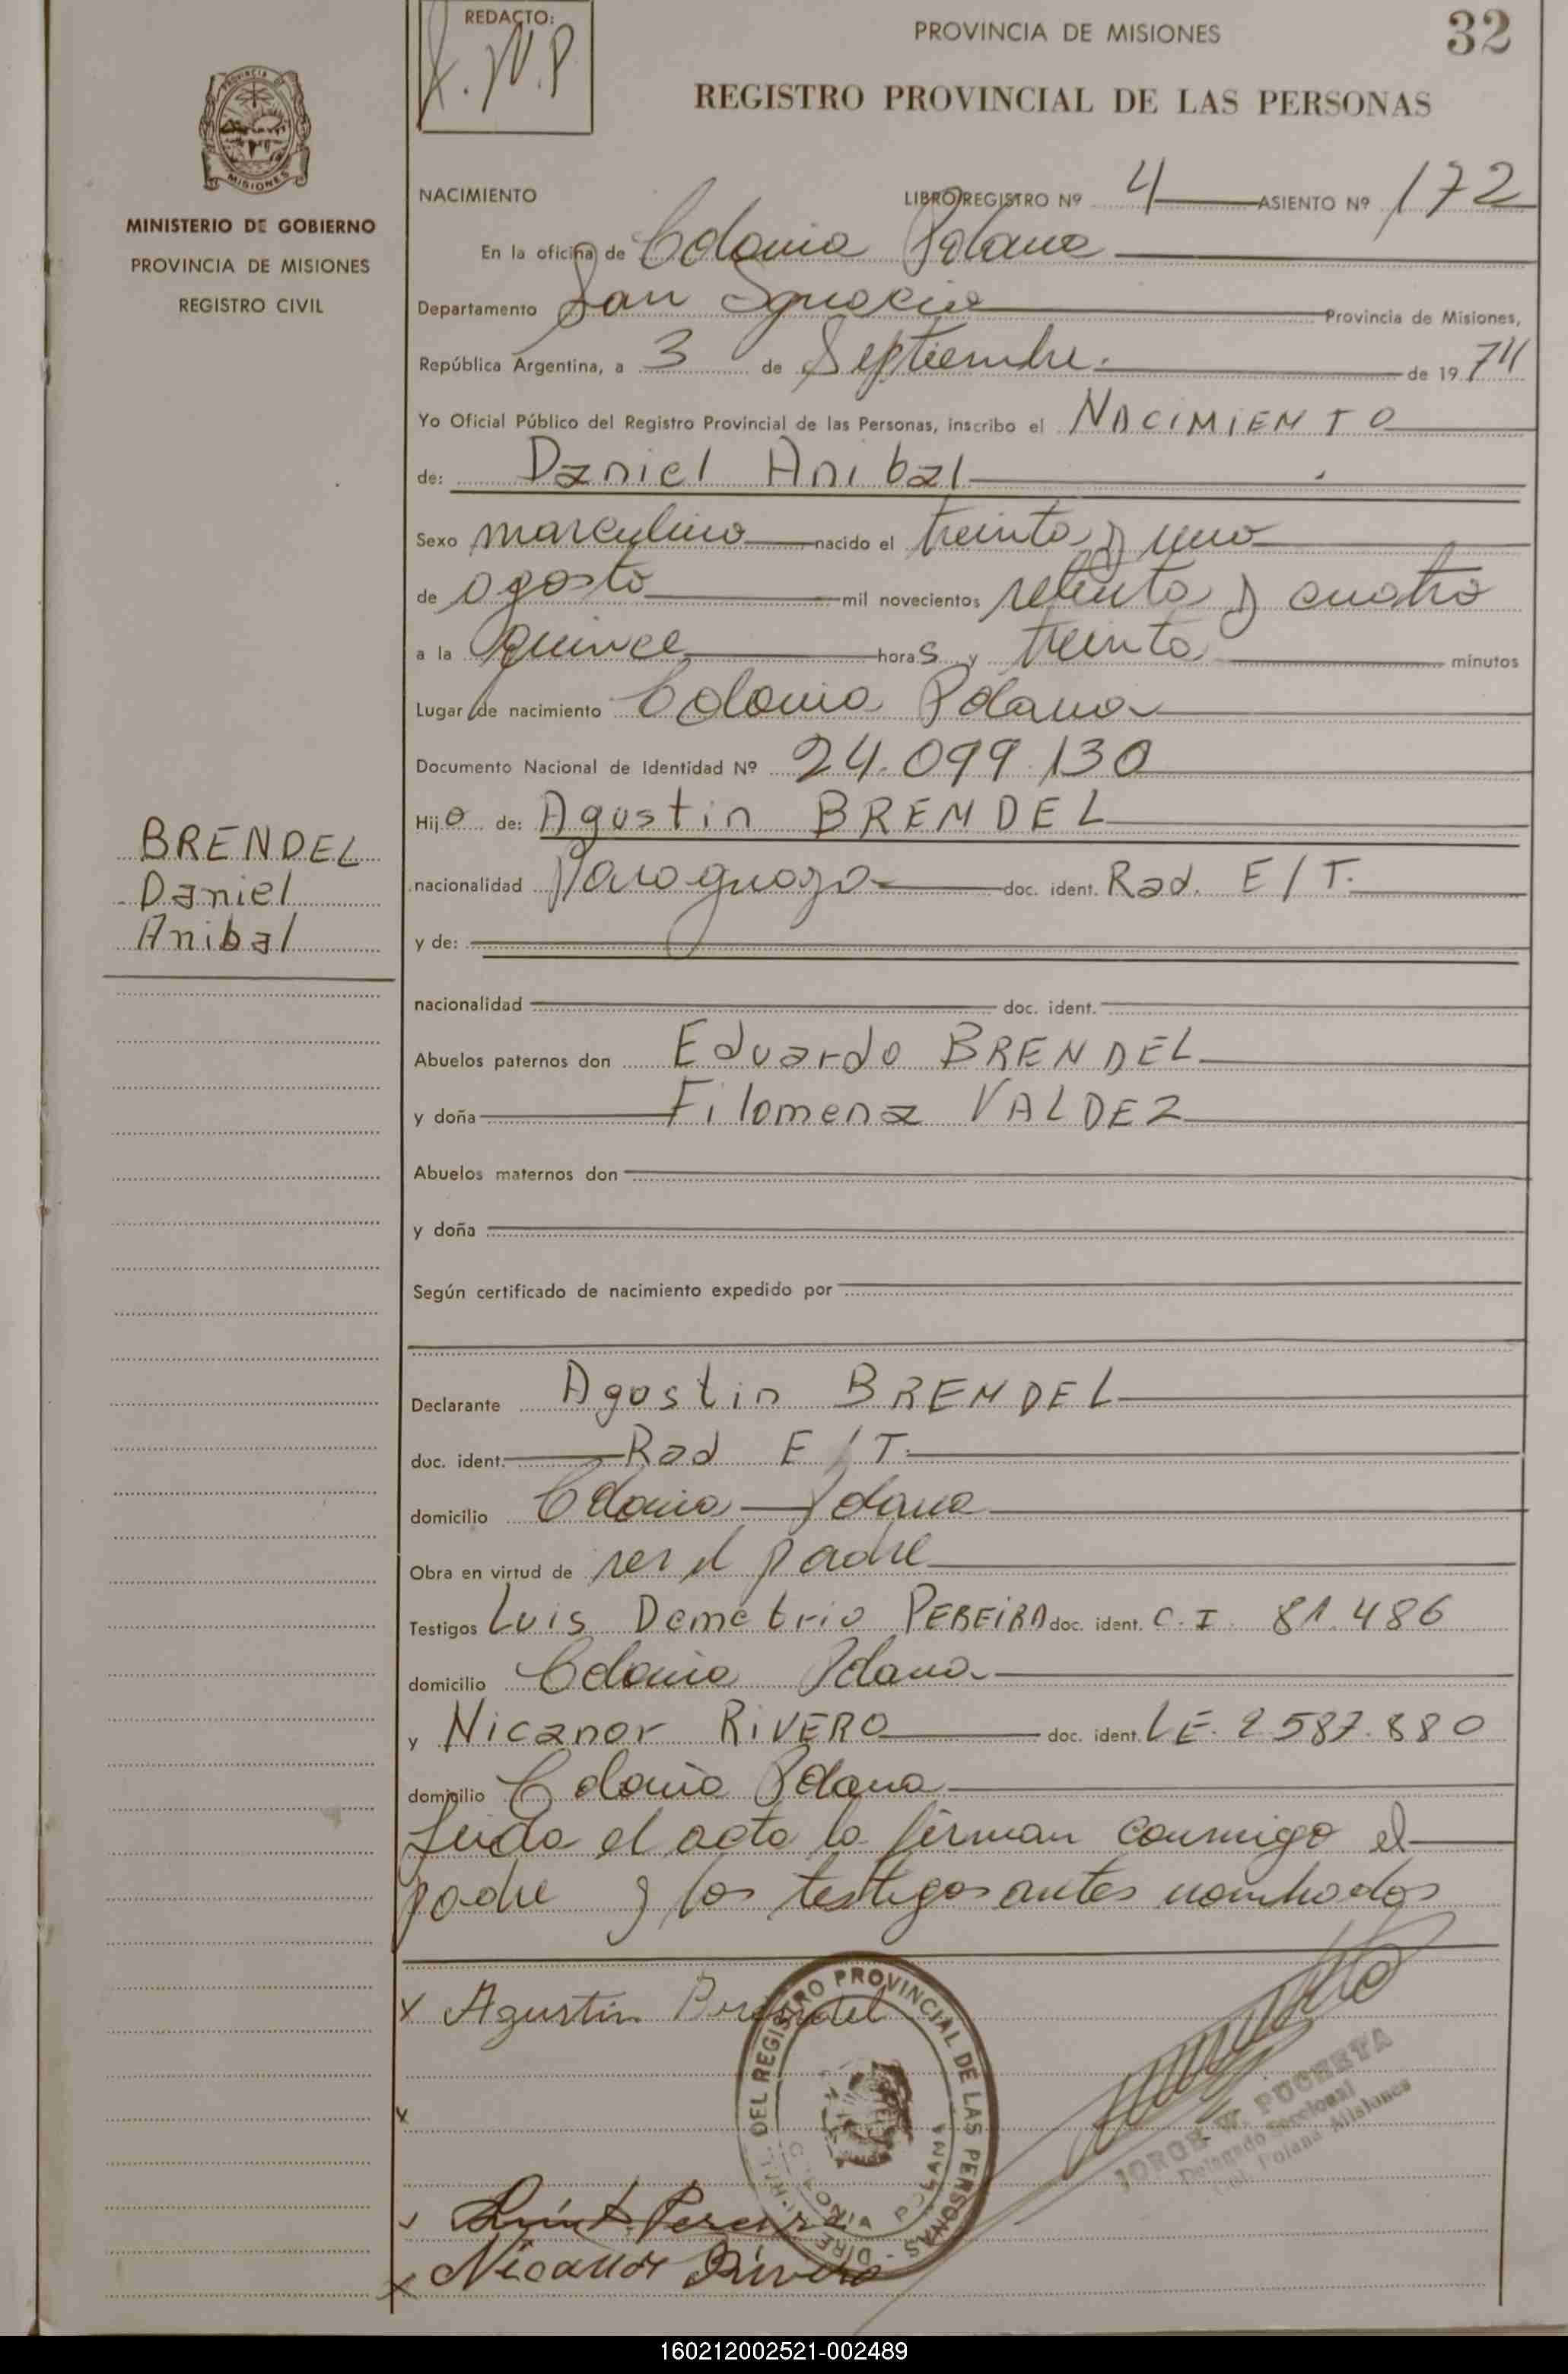 REDACTO:
PROVINCIA DE MISIONES
32
REGISTRO PROVINCIAL DE LAS PERSONAS
MISIONES
MINISTERIO DE GOBIERNO
PROVINCIA DE MISIONES
REGISTRO CIVIL
NACIMIENTO LIBRO REGISTRO Nº 4 ASIENTO Nº 172
En la oficina de Colonia Polana
Departamento San Ignacio Provincia de Misiones,
República Argentina, a 3 de Septiembre. de 1974
Yo Oficial Público del Registro Provincial de las Personas, inscribo el NACIMIENTO
de: Daniel Anibal
Sexo masculino nacido el treinta y uno
de agosto mil novecientos setenta y cuatro
a la quince horas y treinta minutos
Lugar de nacimiento Colonia Polana
Documento Nacional de Identidad Nº 24.099.130
Hijo de: Agustin BRENDEL
BRENDEL
Daniel
Anibal
nacionalidad Paraguayo doc. ident. Rad. E/T.
y de:
nacionalidad doc. ident.
Abuelos paternos don Eduardo BRENDEL
y doña Filomena VALDEZ
Abuelos maternos don
y doña
Según certificado de nacimiento expedido por
Declarante Agostin BRENDEL
doc. ident. Rad E/T.
domicilio Colonia Polana
Obra en virtud de ser el padre
Testigos Luis Demetrio PEREIRA doc. ident. C.I. 81.486
domicilio Colonia Polana
y Nicanor RIVERO doc. ident. LE. 2.587.880
domicilio Colonia Polana
Leida el acta la firman conmigo el
padre y los testigos antes nombrados
x Agustin Brendel
x
Pereira
x Nicanor Rivero
DIRE DEL REGISTRO PROVINCIAL DE LAS PERSONAS
COLONIA POLANA
JORGE W. PUCHETA
Delegado Seccional
Col. Polana Misiones
160212002521-002489